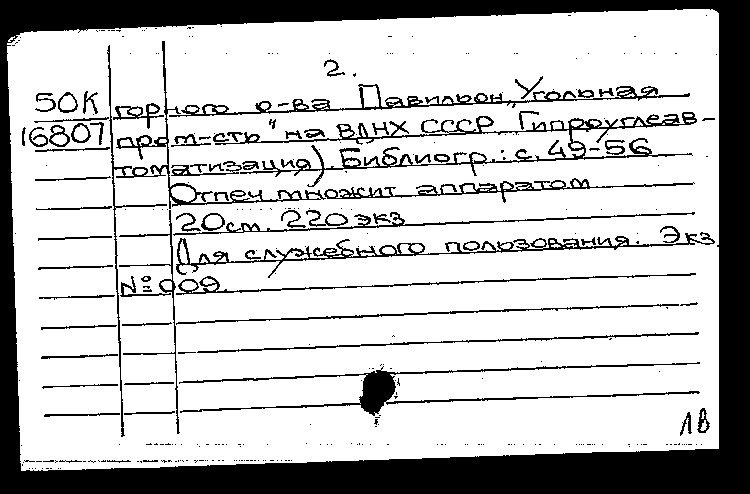 2.
50К горного о-ва Павильон „Угольная
16807 пром-сть" на ВДНХ СССР Гипроуглеав-
томатизация). Библиогр.: с. 49-56
Отпеч множит аппаратом
20 см. 220 экз
Для служебного пользования. Экз
№ 009.
ЛВ